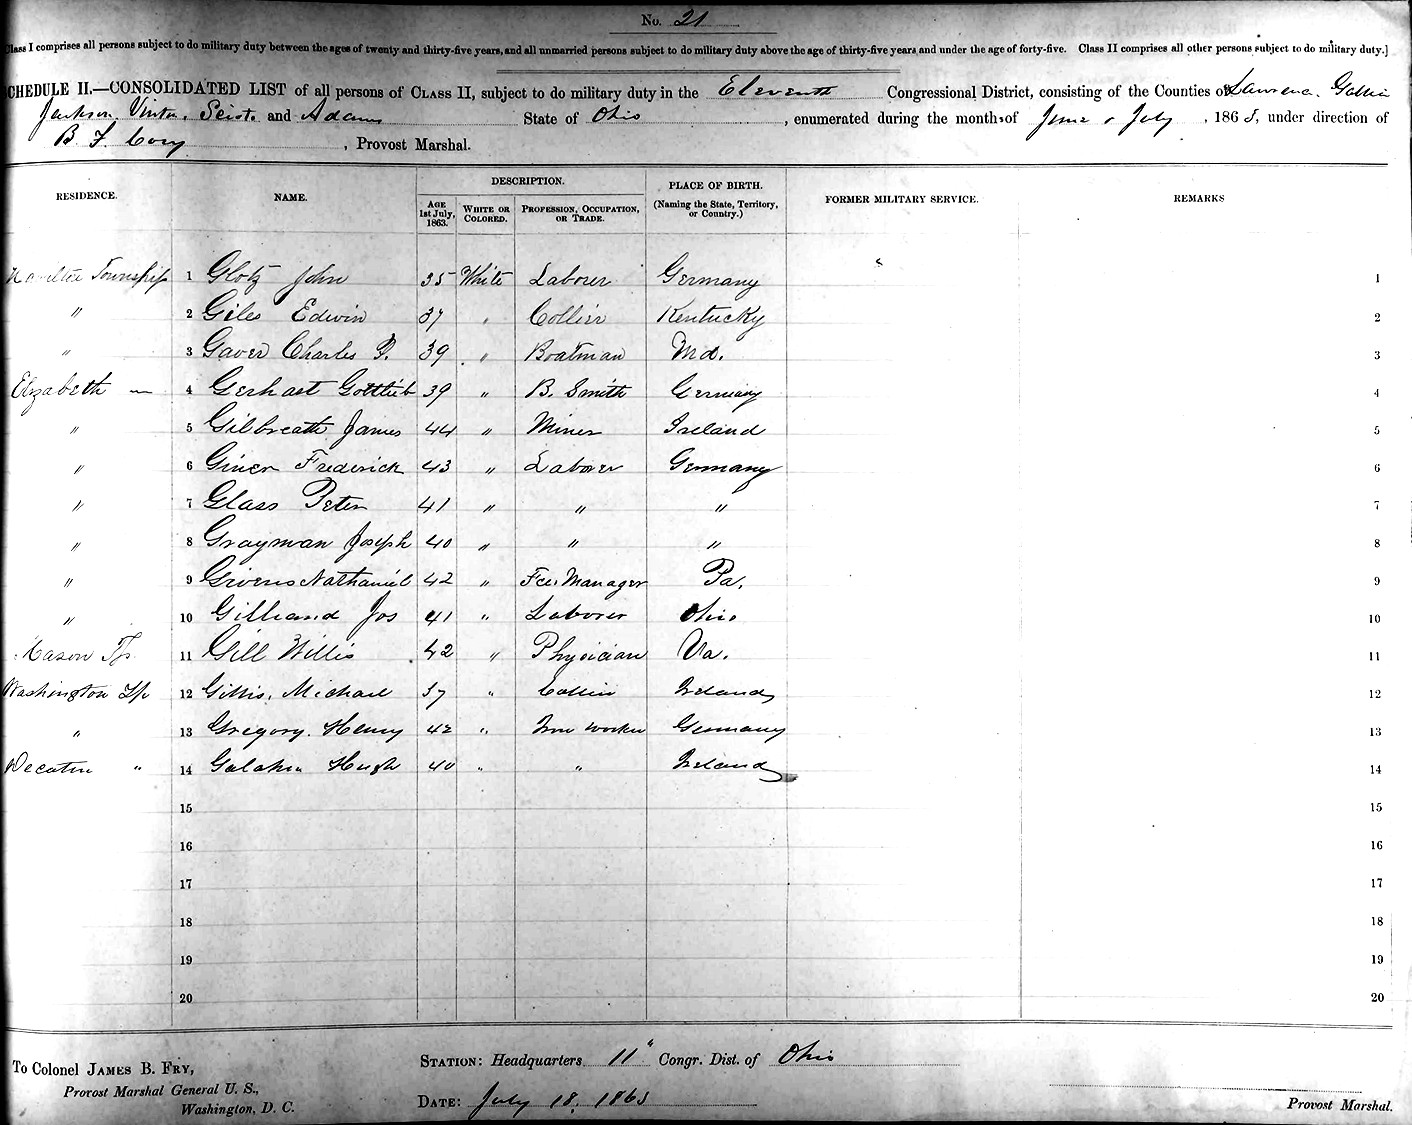 No. 21
Class I comprises all persons subject to do military duty between the ages of twenty and thirty-five years, and all unmarried persons subject to do military duty above the age of thirty-five years and under the age of forty-five. Class II comprises all other persons subject to do military duty.]
SCHEDULE II.—CONSOLIDATED LIST of all persons of CLASS II, subject to do military duty in the Eleventh Congressional District, consisting of the Counties of Lawrence, Gallia
Jackson, Vinton, Scioto and Adams State of Ohio, enumerated during the months of June & July, 1863, under direction of
B. F. Cory, Provost Marshal.
RESIDENCE. NAME. DESCRIPTION. PLACE OF BIRTH. (Naming the State, Territory, or Country.) FORMER MILITARY SERVICE. REMARKS
AGE 1st July, 1863. WHITE OR COLORED. PROFESSION, OCCUPATION, OR TRADE.
Township 1 Glotz John 35 White Laborer Germany 1
" 2 Giles Edwin 37 " Collier Kentucky 2
" 3 Gaver Charles P. 39 " Boatman Md. 3
Elizabeth — 4 Gerhart Gottlieb 39 " B. Smith Germany 4
" 5 Gilbreath James 44 " Miner Ireland 5
" 6 Giner Frederick 43 " Laborer Germany 6
" 7 Glass Peter 41 " " " 7
" 8 Grayman Joseph 40 " " " 8
" 9 Givens Nathaniel 42 " Fce. Manager Pa. 9
" 10 Gilliland Jos 41 " Laborer Ohio 10
Mason Tp. 11 Gill Willis 42 " Physician Va. 11
Washington Tp 12 Gillis, Michael 37 " Collier Ireland 12
" 13 Gregory. Henry 42 " Iron worker Germany 13
Decatur " 14 Hugh 40 " " Ireland 14
15 15
16 16
17 17
18 18
19 19
20 20
To Colonel JAMES B. FRY,
Provost Marshal General U. S.,
Washington, D. C.
STATION: Headquarters 11" Congr. Dist. of Ohio
DATE: July 18, 1863
Provost Marshal.